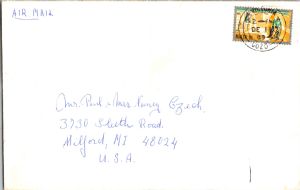 AIR MAIL
DE
GOZO
Mr. Paul & Mrs. Nancy Czech
3730 Sleeth Road.
Milford, MI 48024
U.S.A.